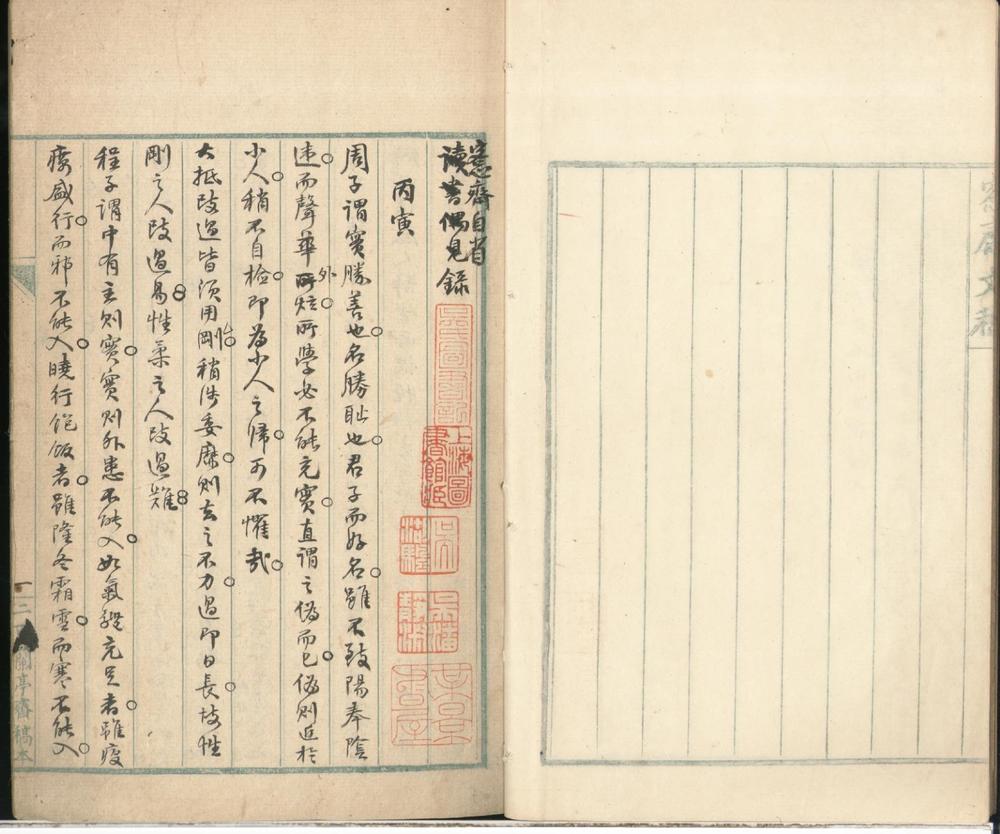 窓齋自省
讀書偶見錄
丙寅
周子謂實勝善也名勝恥也君子而好名雖不致陽奉陰
違而聲華外炫所學必不能充實直謂之偽而已偽則近於
小人稍不自檢即為小人之歸可不懼哉
大抵改過皆須用剛稍涉委靡則去之不力過即日長故性
剛之人改過易性柔之人改過難
程子謂中有主則實實則外患不能入如氣體充足者雖疫
癘盛行而邪不能入曉行飽飯者雖隆冬霜雪而寒不能入
上海圖
書館藏
蘭亭齋稿本